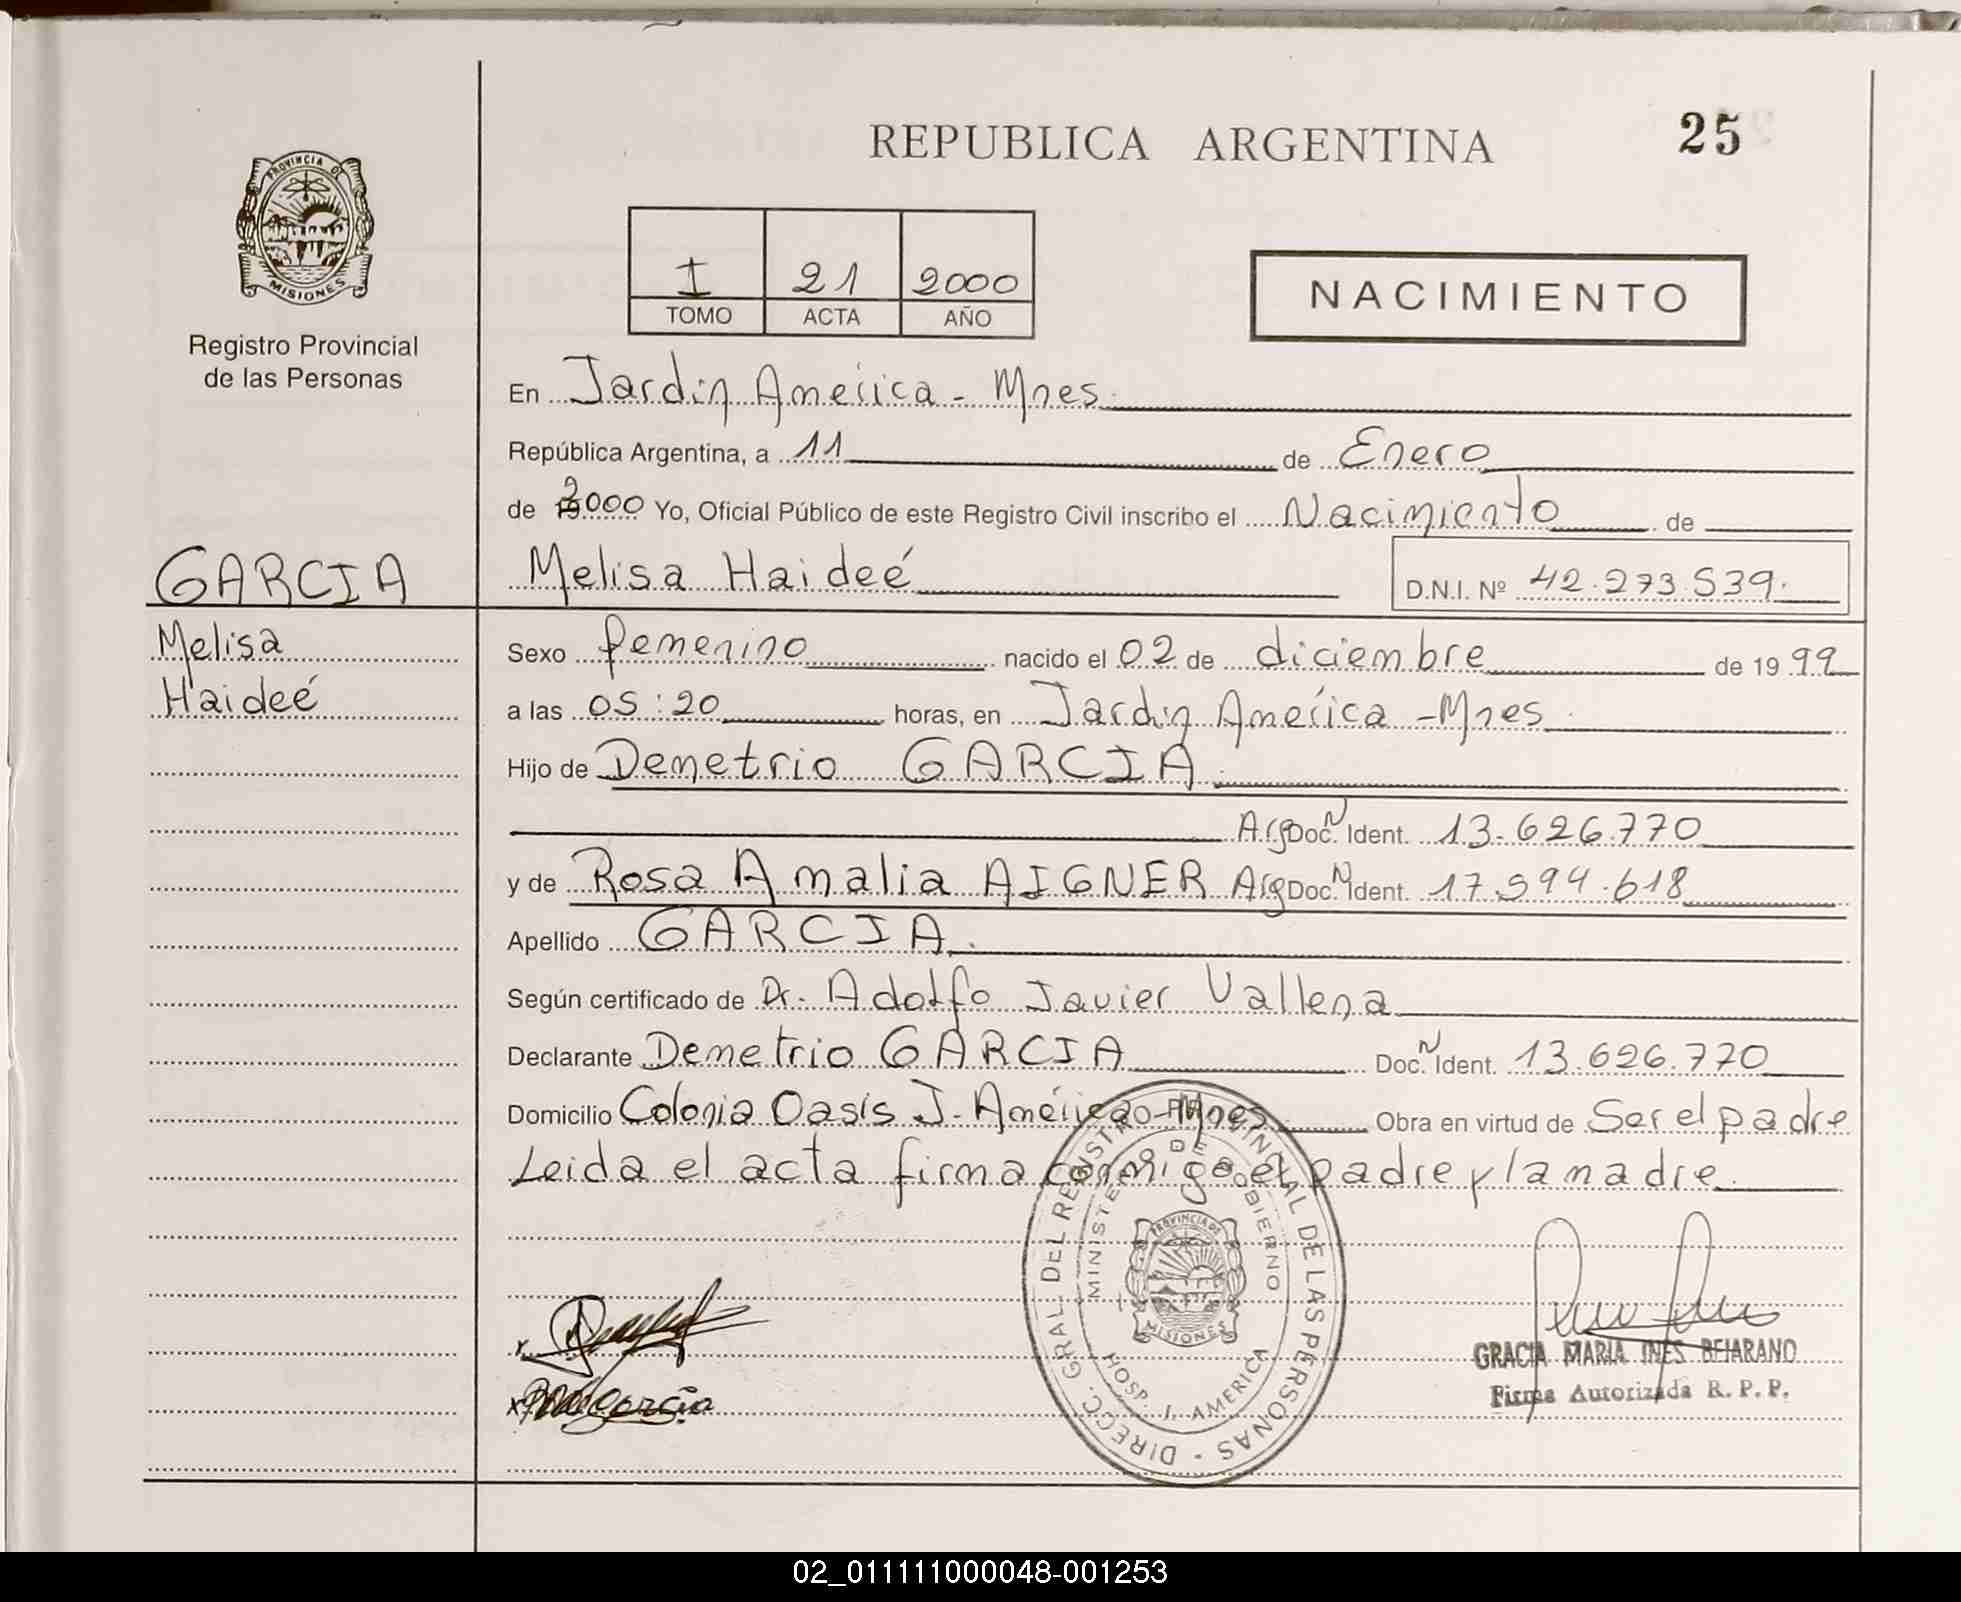 REPUBLICA ARGENTINA
25
PROVINCIA DE
MISIONES
Registro Provincial
de las Personas
I 21 2000
TOMO ACTA AÑO
NACIMIENTO
En Jardín América - Mnes.
República Argentina, a 11 de Enero
de 2000 Yo, Oficial Público de este Registro Civil inscribo el Nacimiento de
GARCIA
Melisa Haideé D.N.I. Nº 42.273.539.
Melisa
Haideé
Sexo femenino nacido el 02 de diciembre de 19 99
a las 05:20 horas, en Jardín América - Mnes.
Hijo de Demetrio GARCIA.
Arg Doc. N Ident. 13.626.770
y de Rosa Amalia AIGNER Arg Doc. N Ident. 17.594.618
Apellido GARCIA.
Según certificado de Dr. Adolfo Javier Vallena
Declarante Demetrio GARCIA Doc. N Ident. 13.626.770
Domicilio Colonia Oasis J. América - Mnes Obra en virtud de Ser el padre
Leida el acta firma conmigo el padre y la madre
DIRECC. GRAL. DEL REGISTRO PROVINCIAL DE LAS PERSONAS
MINISTERIO DE GOBIERNO
PROVINCIA DE
MISIONES
HOSP. J. AMERICA
x
x García
GRACIA MARIA INES BEJARANO
Firma Autorizada R. P. P.
02_011111000048-001253